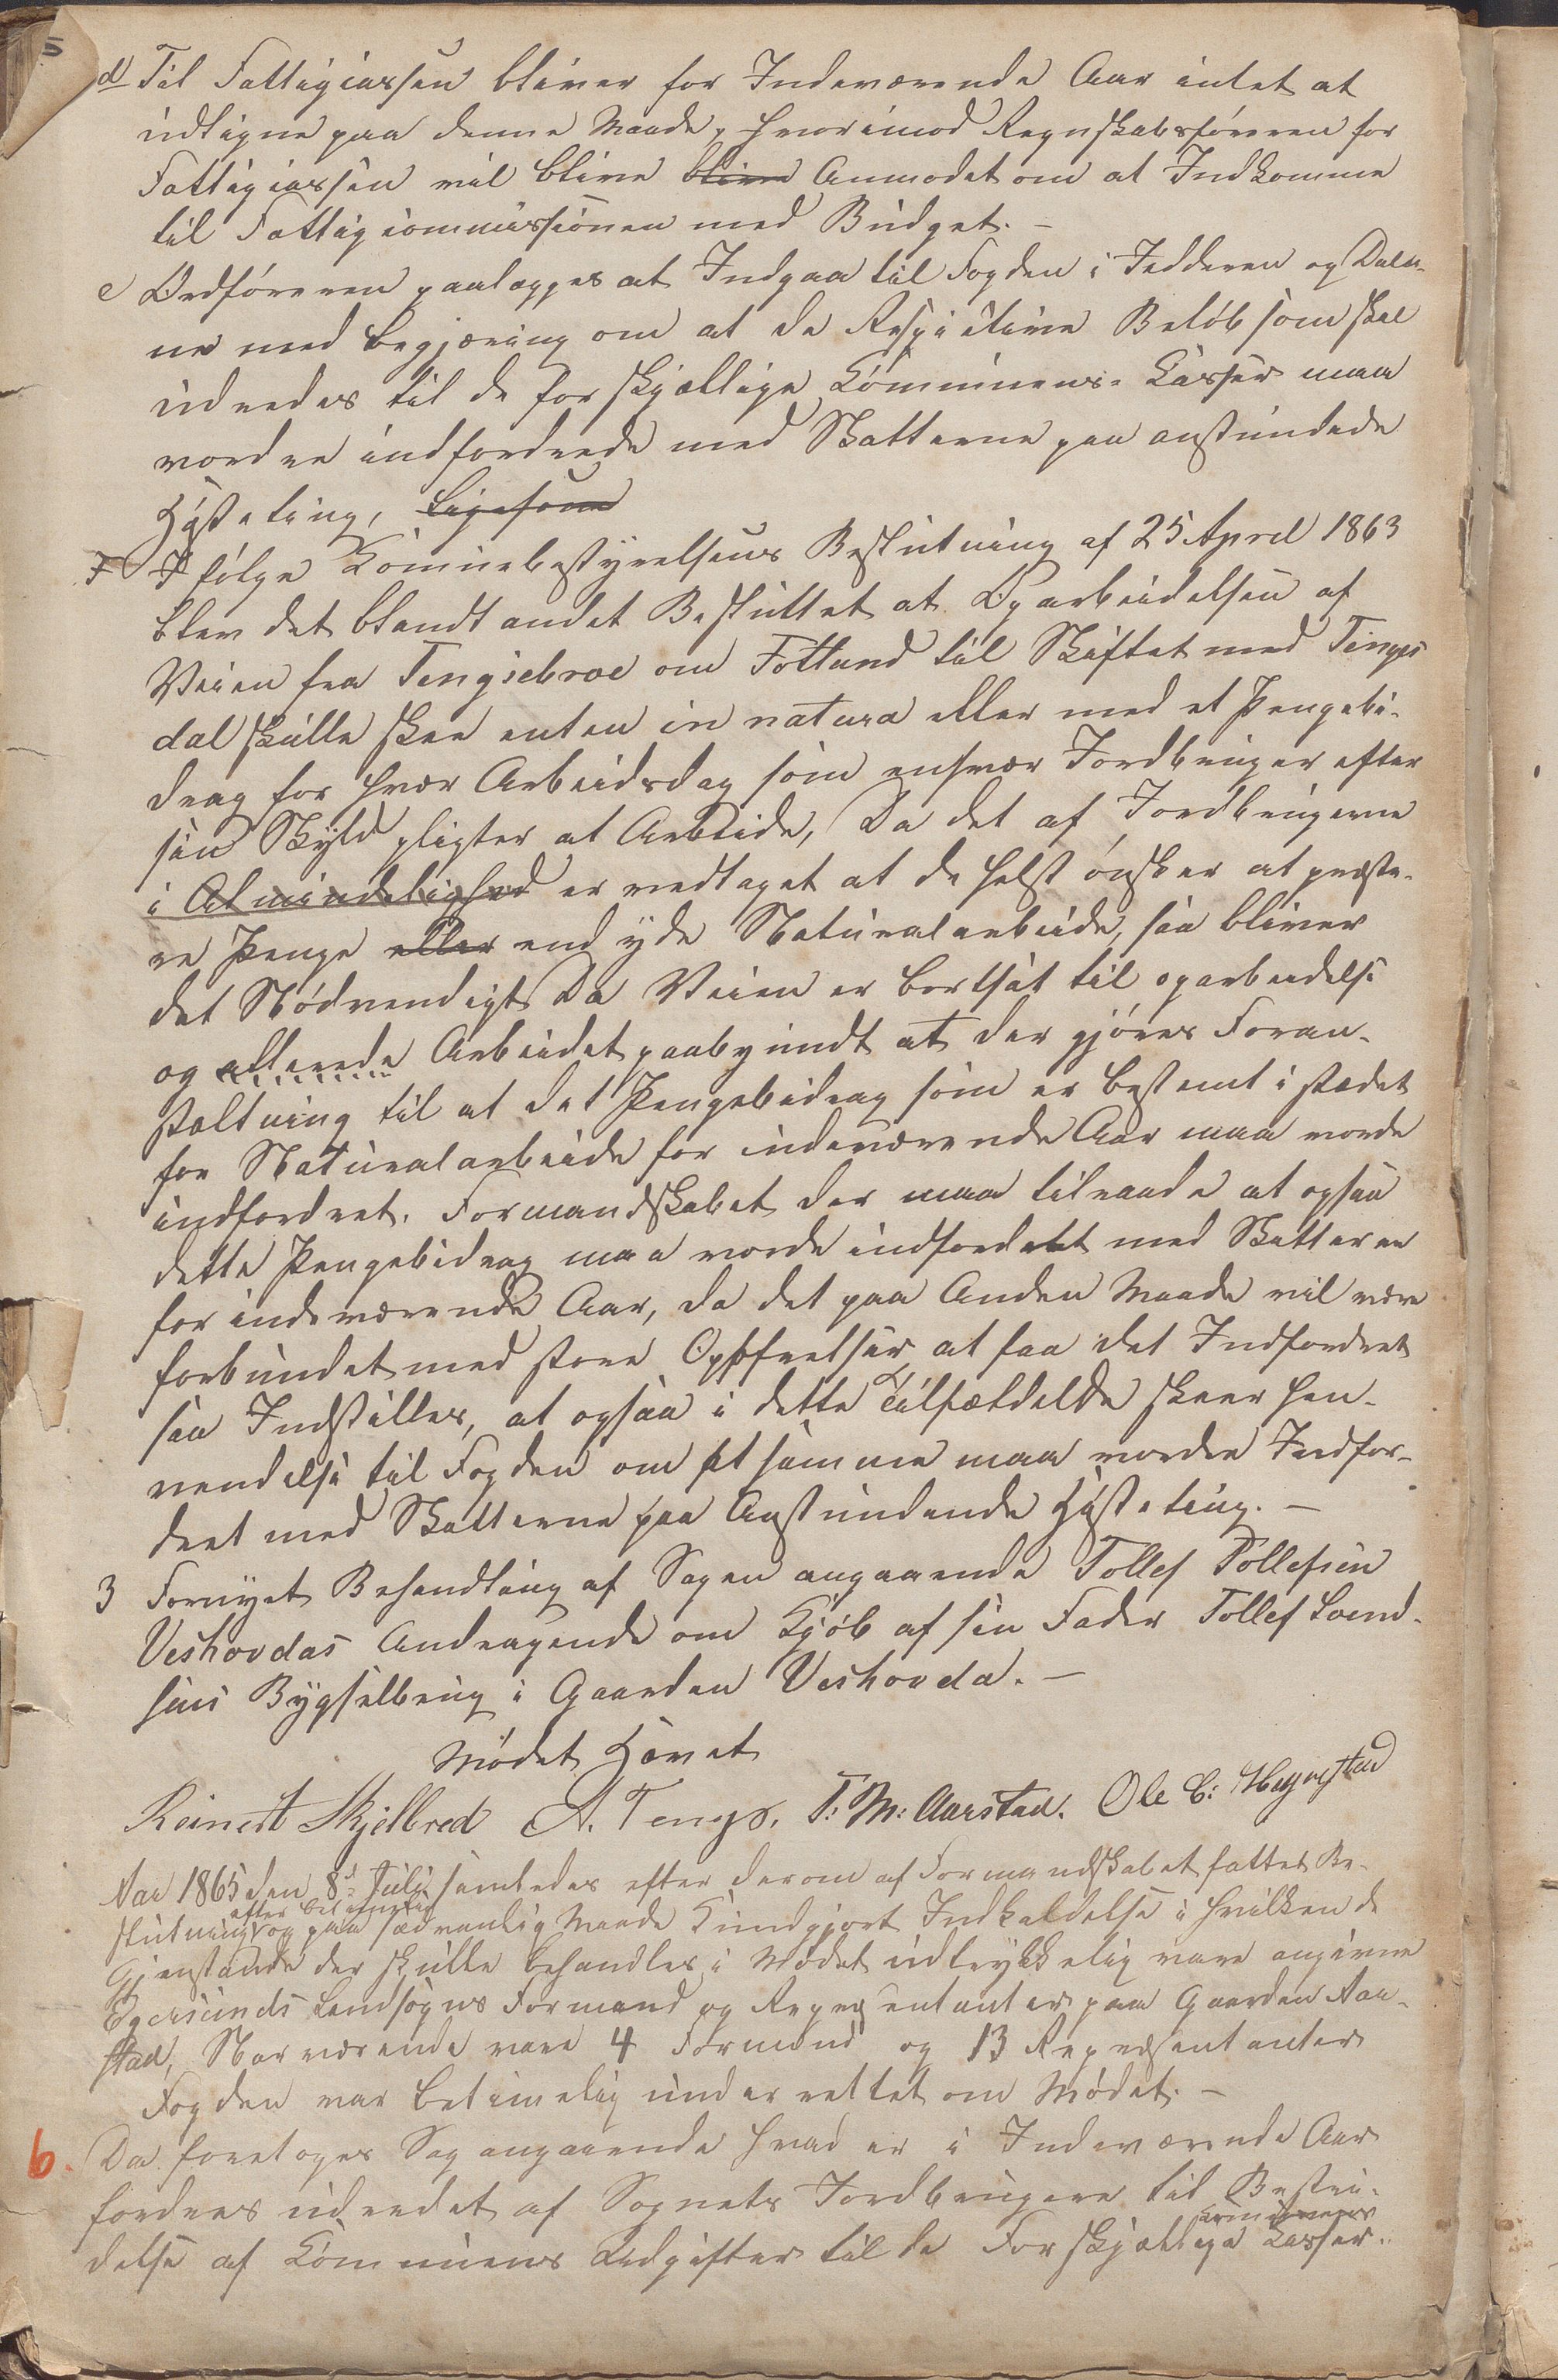 5
d Til Fattigcassen bliver for Indeværende Aar intet at
udligne paa denne Maade, hvorimod Regnskabsføreren for
Fattigcassen vil blive blive Anmodet om at Indkomme
til Fattigcommissionen med Budget. –
e Ordføreren paalægges at Indgaa til Fogden i Jedderen og Dala-
ne med begjæring om at de Respective Beløb som skal
udredes til de forskjællige Communens-Casser maa
vordre indfordrede med Skatterne paa anstundede
Høsteting, ligesom
F Ifølge Comunebestyrelsens Beslutning af 25 April 1863
blev det blandt andet Besluttet at Oparbeidelsen af
Veien fra Tengsebroe om Fotland til Skiftet med Tengs
dal skulle skee enten in natura eller med et Pengebi-
drag for hver Arbeidsdag som enhver Jordbruger efter
sin Skyld pligter at Arbeide, Da det af Jordbrugerne
i Almindelighed er vedtaget at de helst ønsker at præste-
re Penge eller end yde Naturalarbeide, saa bliver
det Nødvendigt Da Veien er bortsat til oparbeidelse
og allerede Arbeidet paabegundt at der gjøres Foran-
staltning til at det Pengebidrag som er bestemt i stædet
for Naturalarbeide for indeværende Aar maa vorde
indfordret. Formandskabet der maa tilraade at ogsaa
dette Pengebidrag maa vorde indfordett med Skatteren
for indeværende Aar, da det paa Anden Maade vil være
forbundet med store Opofrelser at faa det Indfordret
saa Indstilles, at ogsaa i dette Tilfældelde skeer Hen-
vendelse til Fogden om at samme maa vordre Indfor-
dret med Skatterne paa Anstundende Høsteting. –
3 Fornyet Behandling af Sagen angaaende Tollef Tollefsen
Veshovdas Andragende om Kjøb af sin Fader Tollef Larsd-
sens Bygselbrug i Gaarden Veshovda. –
Mødet Hævet
Reinert Skjelbred A. Tengs. T: M: Aarstad. Ole C: Hegrestad
Aar 1865 den 8d Juli samledes efter derom af Formandskabet fattet Be-
efter betimelig
slutning og paa sædvanlig Maade Kundgjort Indkaldelse i hvilken de
Gjenstande der skulle behandles i Mødet udtrykkelig vare angivne
Egersunds Landsogns Formænd og Repræsentanter paa Gaarden Aar-
stad, Nærværende vare 4 Formænd og 13 Repræsentanter
Fogden var betimelig underrettet om Mødet. –
6. Da foretoges Sag angaaende hvad er i Indeværende Aar
fordres udredet af Sognets Jordbrugere til Bestri-
Comunens
delse af Communens Udgifter til de Forskjællige Casser.